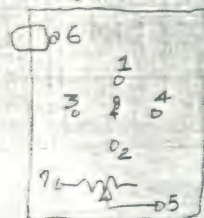 6
1
3 8 4
2
7
5